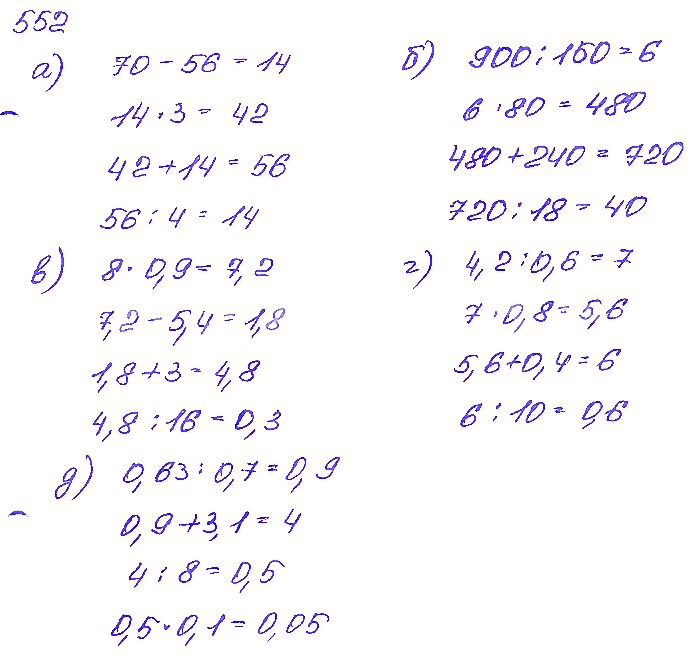 552
а) 70 - 56 = 14
14 · 3 = 42
42 + 14 = 56
56 : 4 = 14
б) 900 : 150 = 6
6 · 80 = 480
480 + 240 = 720
720 : 18 = 40
в) 8 · 0,9 = 7,2
7,2 - 5,4 = 1,8
1,8 + 3 = 4,8
4,8 : 16 = 0,3
г) 4,2 : 0,6 = 7
7 · 0,8 = 5,6
5,6 + 0,4 = 6
6 : 10 = 0,6
д) 0,63 : 0,7 = 0,9
0,9 + 3,1 = 4
4 : 8 = 0,5
0,5 · 0,1 = 0,05